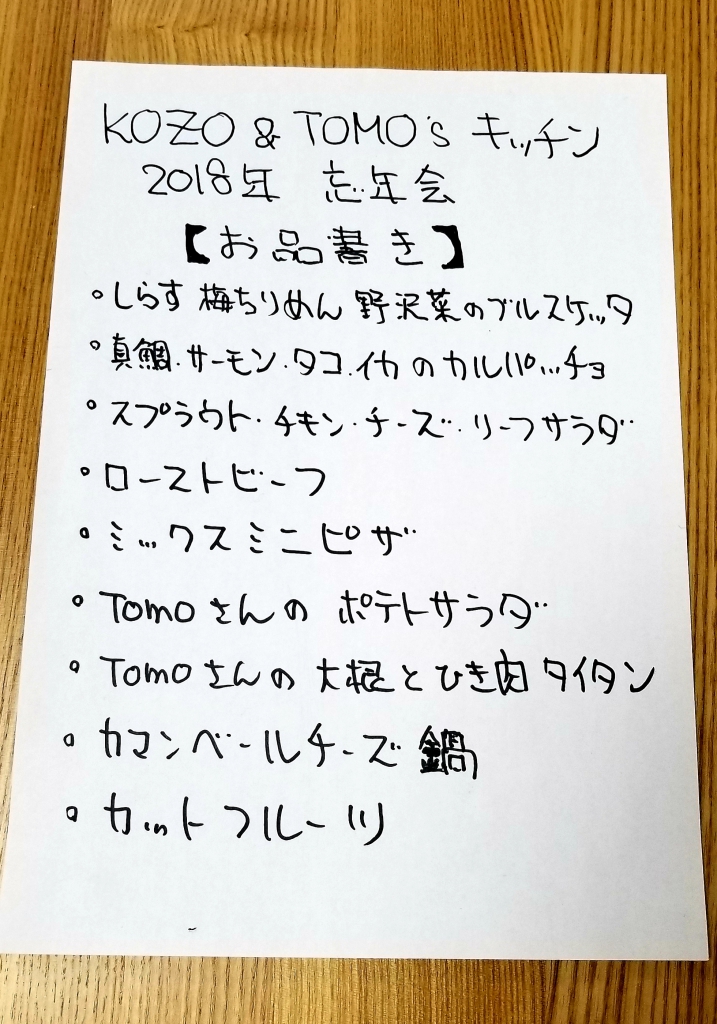 KOZO & TOMO'S キッチン
2018年 忘年会
【お品書き】
・しらす 梅ちりめん 野沢菜のブルスケッタ
・真鯛・サーモン・タコ・イカのカルパッチョ
・スプラウト・チキン・チーズ・リーフサラダ
・ローストビーフ
・ミックスミニピザ
・Tomoさんの ポテトサラダ
・Tomoさんの 大根とひき肉タイタン
・カマンベールチーズ鍋
・カットフルーツ